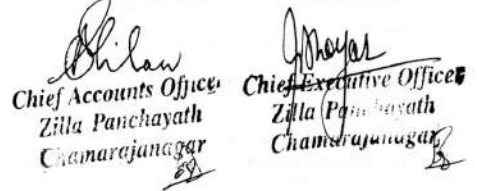 Chief Accounts Officer
Zilla Panchayath
Chamarajanagar
Chief Executive Officer
Zilla Panchayath
Chamarajanagar